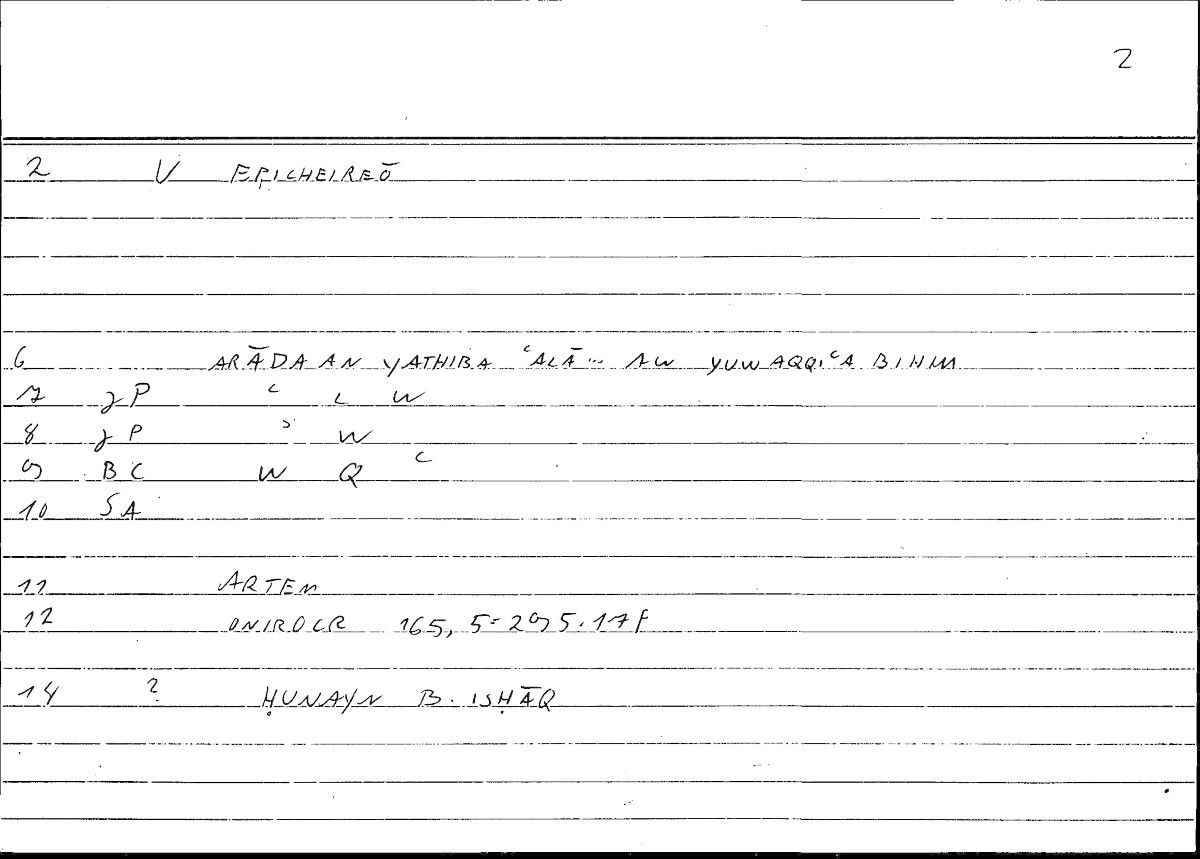 2
2 V EPICHEIREŌ
6 ARĀDA AN YATHIBA ʿALĀ... AW YUWAQQIʿA BIHIM
7 JP ʿ L W
8 JP ʾ W
9 BC W Q ʿ
10 SA
11 ARTEM
12 ONIROCR 165, 5=295.17f
14 ? ḤUNAYN B. ISḤĀQ